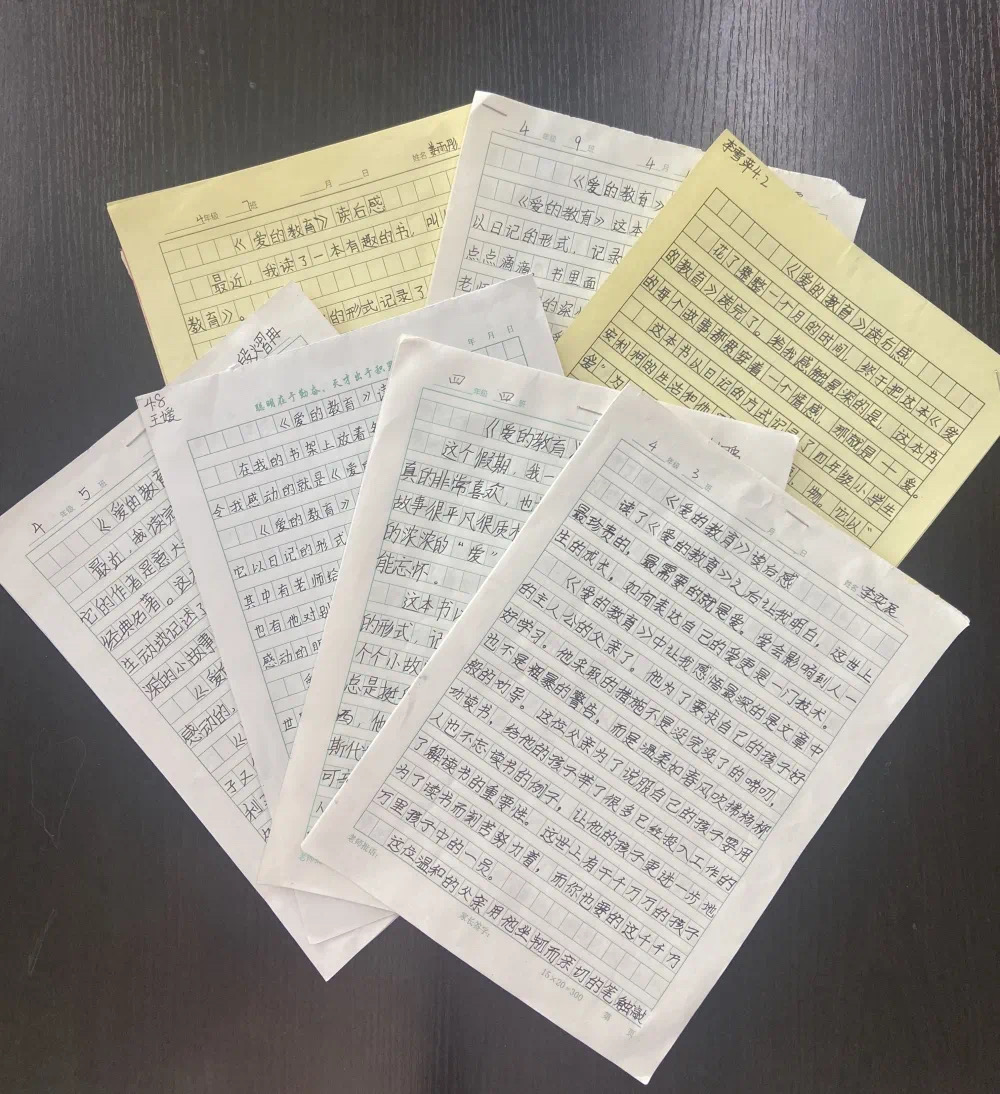 姓名 姜雨彤
月 日
4年级 7班
《爱的教育》读后感
最近，我读了一本有趣的书，叫
教育》。
的形式记录了
4 年级 9 班
4 月
《爱的教育》
《爱的教育》这本
以日记的形式，记录
点点滴滴。书里面
老师
的深
李雪萍4.2
《爱的教育》读后感
花了整整一个月的时间，终于把这本《爱
的教育》读完了。给我感触最深的是，这本书
的每个故事都贯穿着一个情感，那就是十爱。
这本书以日记的方式记录了四年级小学生
安利柯的生活和他
物。它以“
爱”为
4 年级 5 班
《爱的教育
最近，我读完
它的作者是意大
经典名著。这
生动地记述了
深的小故事
《爱
感动的，
48
王媛
年 月 日
聪明在于勤奋，天才出于积累
《爱的教育》读
在我的书架上放着
令我感动的就是《爱
《爱的教育》
它以日记的形式
其中有老师给
也有他对
感动的
四 年级 四 班
《爱的教育
这个假期，我
真的非常喜欢，也
故事很平凡很质朴
的深深的“爱”
能忘怀。
这本书以
的形式，记
个个小故
总是挺
西，他
斯代
可
4 年级 3 班
月 日
姓名 李奕辰
《爱的教育》读后感
读了《爱的教育》之后让我明白，这世上
最珍贵的，最需要的就是爱。爱会影响到人一
生的成长，如何表达自己的爱更是一门技术。
《爱的教育》中让我感悟最深的是文章中
的主人公的父亲了。他为了要求自己的孩子好
好学习。他采取的措施不是没完没了的唠叨，
也不是粗暴的警告，而是温柔如春风吹拂杨柳
般的劝导。这位父亲为了说服自己的孩子要用
功读书，给他的孩子举了很多已经投入工作的
人也不忘读书的例子，让他的孩子更进一步地
了解读书的重要性。这世上有千千万万的孩子
为了读书而刻苦努力着，而你也要的这千千万
万里孩子中的一员。
这位温和的父亲用他坐韧而亲切的笔触敲
老师批语：
家长签字：
15×20=300
第 页